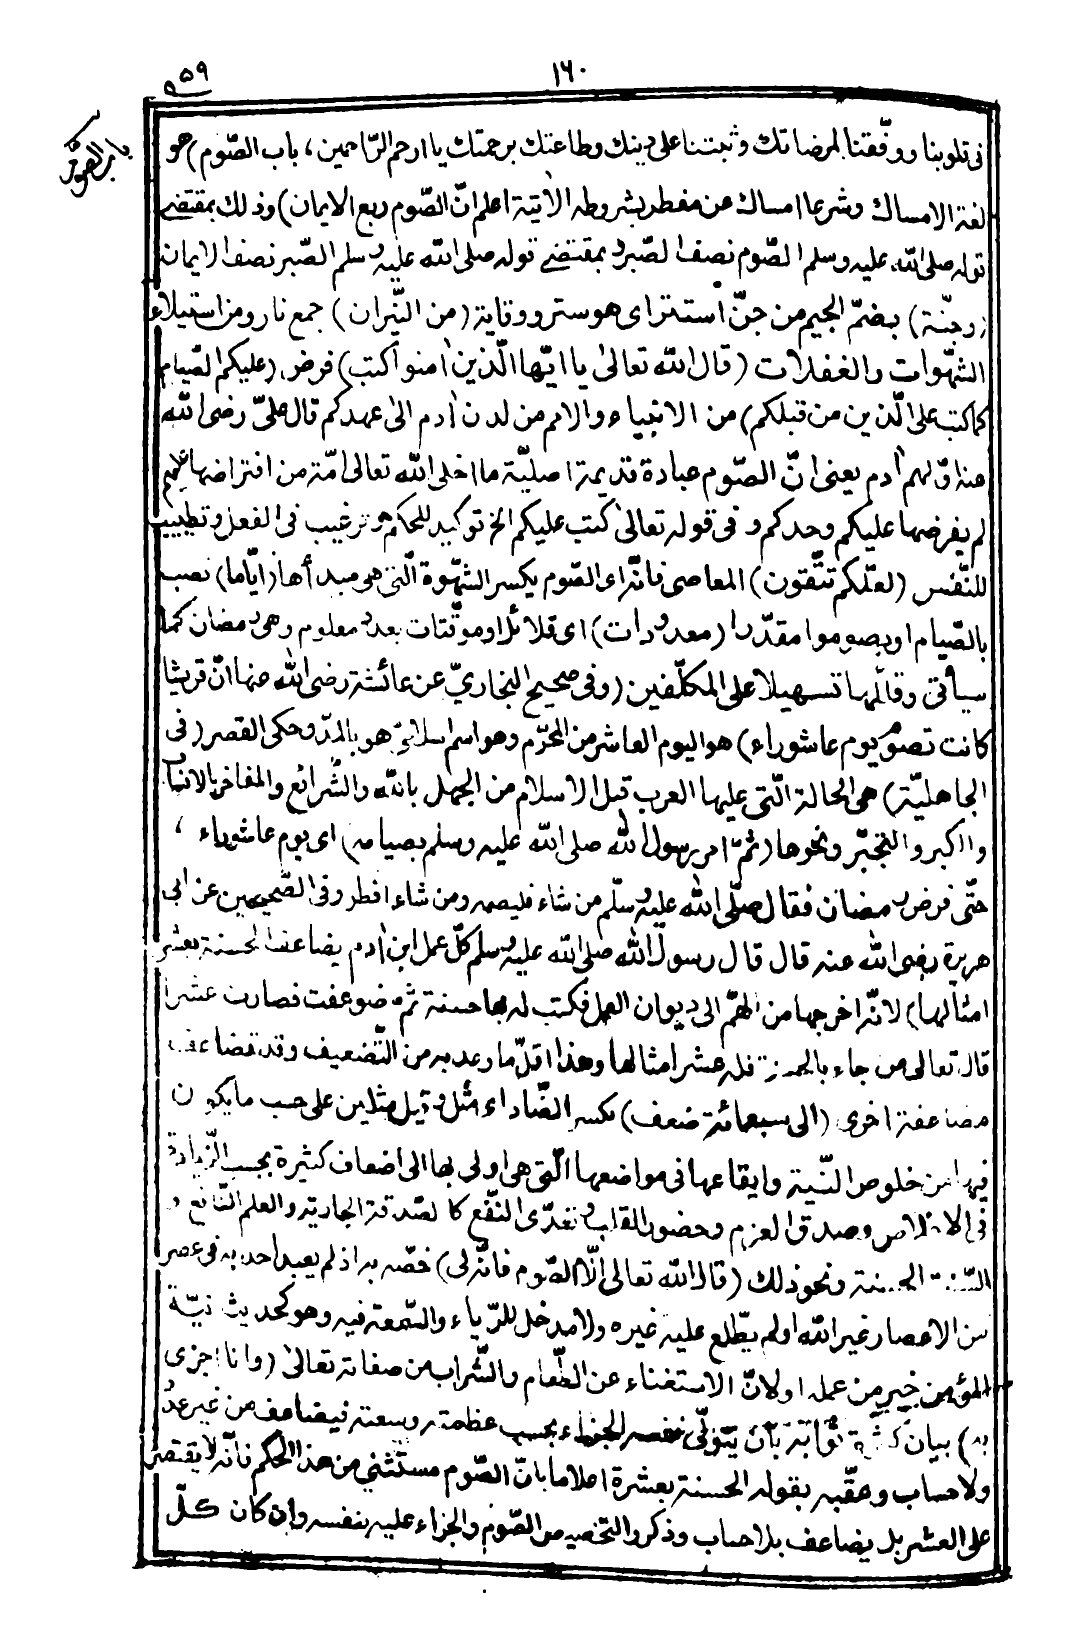 ١٦٠
٩٥٩
باب الصوم
فى قلوبنا ووفّقنا لمرضاتك وثبتنا على دينك وطاعتك برحمتك يا ارحم الرّاحمين ، باب الصّوم) هو
لغة الامساك وشرعا امساك عن مفطر بشروطه الآتية اعلم انّ الصّوم ربع الايمان) وذلك بمقتضى
قوله صلى الله عليه وسلم الصّوم نصف الصّبر و بمقتضى قوله صلى الله عليه وسلم الصّبر نصف الايمان
(وجنّة) بضمّ الجيم من جنّ استتر اى هو ستر ووقاية (من النّيران) جمع نار ومن استيلاء
الشهّوات والغفلات (قال الله تعالى يا ايّها الّذين اٰمنوا كتب) فرض (عليكم الصّيام
كما كتب على الّذين من قبلكم) من الانبياء والامم من لدن اٰدم الى عهدكم قال علىّ رضى الله
عنه اوّلهم اٰدم يعنى انّ الصّوم عبادة قديمة اصليّة ما اخلى الله تعالى امّة من افتراضها عليهم
لم يفرضها عليكم وحدكم و فى قوله تعالى كتب عليكم الخ توكيد للحكم وترغيب فى الفعل وتطييب
للنّفس (لعلّكم تتّقون) المعاصى فانّه اى الصّوم يكسر الشهّوة الّتى هى مبدأها (ايّاما) نصب
بالصّيام او بصوموا مقدّرا (معدودات) اى قلائل او موقّتات بعدد معلوم وهى رمضان كما
سيأتى وقلّلها تسهيلا على المكلّفين (وفى صحيح البخاريّ عن عائشة رضى الله عنها انّ قريشا
كانت تصوم يوم عاشوراء) هو اليوم العاشر من المحرّم وهو اسم اسلاميّ هو بالمدّ وحكى القصر (فى
الجاهليّة) هى الحالة الّتى عليها العرب قبل الاسلام من الجهل بالله والشّرائع والمفاخر بالانساب
والكبر والتجبّر ونحوها (ثمّ امر رسول الله صلى الله عليه وسلم بصيامه) اى يوم عاشوراء ،
حتّى فرض رمضان فقال صلّى الله عليه وسلّم من شاء فليصمه ومن شاء افطر وفى الصّحيحين عن ابى
هريرة رضى الله عنه قال قال رسول الله صلى الله عليه وسلم كلّ عمل ابن اٰدم يضاعف الحسنة بعشر
امثالها) لانّه اخرجها من الهمّ الى ديوان العمل فكتب له بها حسنة ثمّ ضوعفت فصارت عشرا
قال تعالى من جاء بالحسنة فله عشر امثالها وهذا اقلّ ما وعد به من التّضعيف وقد تضاعف
مضاعفة اخرى (الى سبعمائة ضعف) بكسر الضّاد اى مثل وقيل مثلين على حسب ما يكون
فيها من خلوص النّية وايقاعها فى مواضعها الّتى هى اولى بها الى اضعاف كثيرة بحسب الزّيادة
فى الاخلاص وصدق العزم وحضور القلب و تعدّى النّفع كالصّدقة الجارية والعلم النّافع و
السّنة الحسنة ونحو ذلك (قال الله تعالى الّا الصّوم فانّه لى) خصّه به اذ لم يعبد احد به فى عصر
من الاعصار غير الله او لم يطّلع عليه غيره ولا مدخل للرّياء والسّمعة فيه وهو كحديث نيّة
المؤمن خير من عمله او لانّ الاستغناء عن الطّعام والشّراب من صفاته تعالى (وانا اجزى
به) بيان كثرة ثوابه بأن يتولّى بنفسه الجزاء بحسب عظمته وسعته فيضاعف من غير عدّ
ولا حساب وعقّبه بقوله الحسنة بعشرة اعلاما بانّ الصّوم مستثنى من هذا الحكم فانّه لا يقتصر
على العشر بل يضاعف بلا حساب وذكروا التخصيص الصّوم والجزاء عليه بنفسه وان كان كلّ